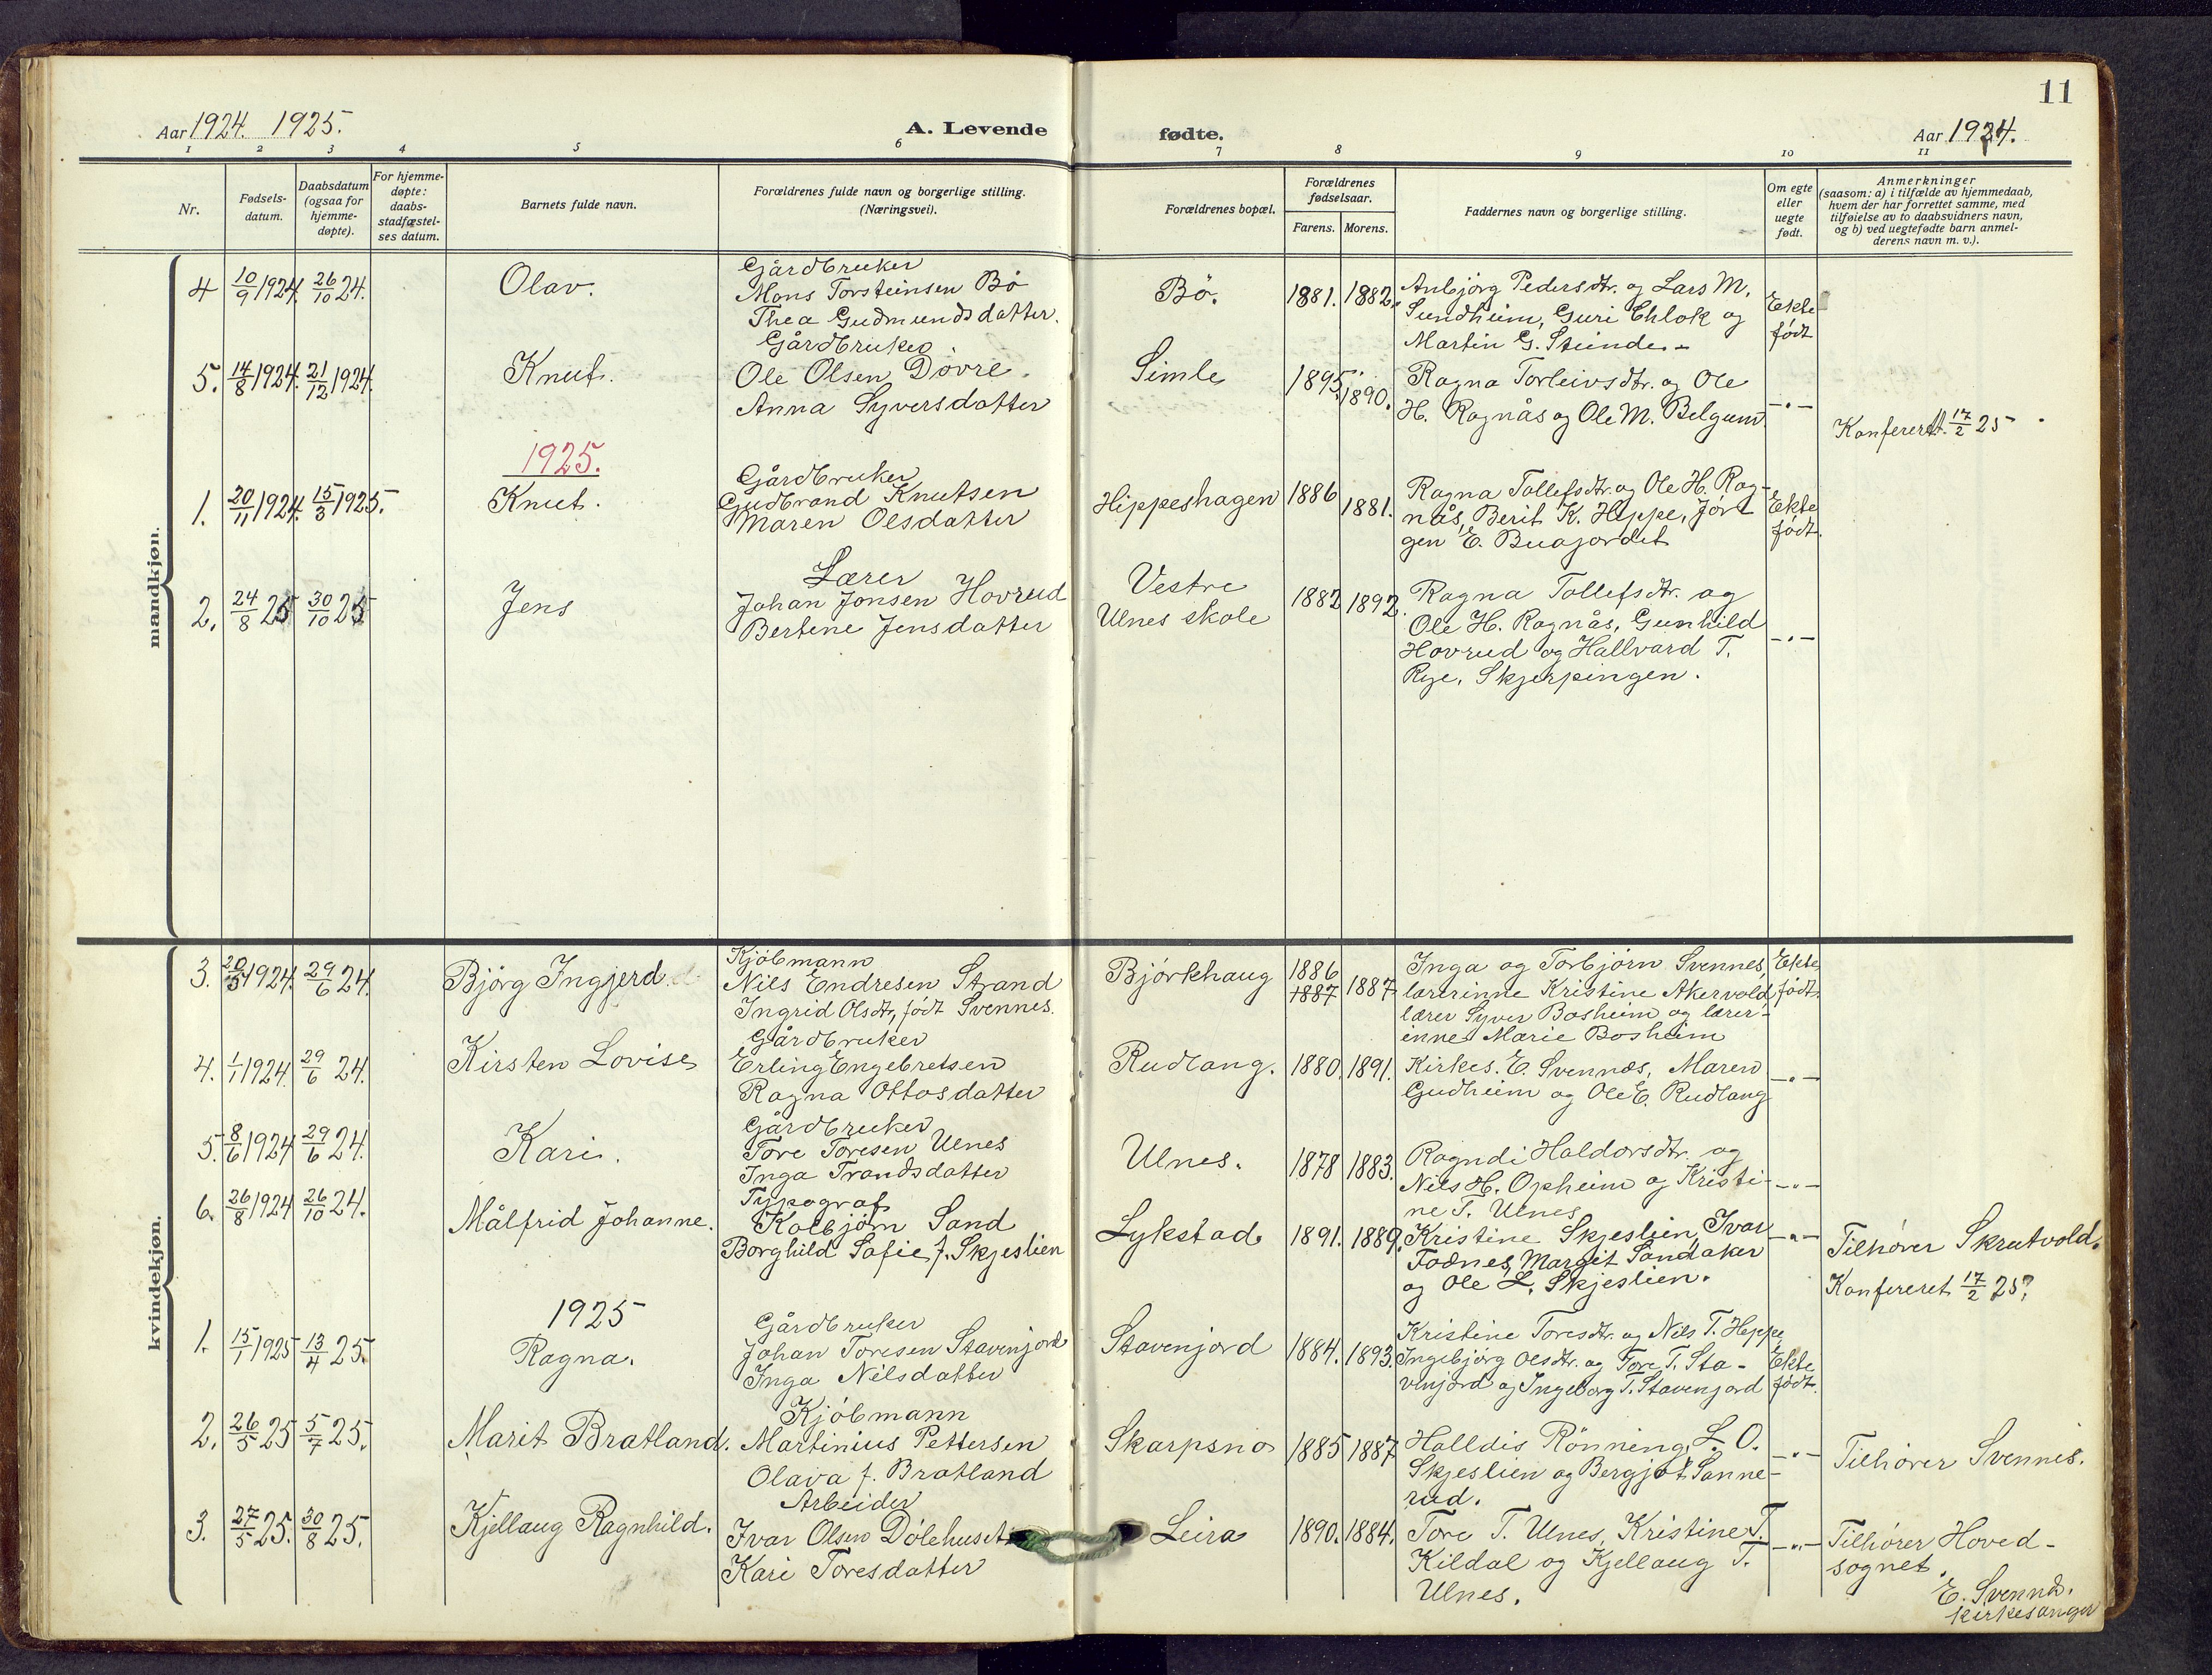 11
Aar 1924. 1925. A. Levende fødte. Aar 1924.
1 2 3 4 5 6 7 8 9 10 11
Nr.
Fødsels-
datum.
Daabsdatum
(ogsaa for
hjemme-
døpte).
For hjemme-
døpte:
daabs-
stadfæstel-
ses datum.
Barnets fulde navn.
Forældrenes fulde navn og borgerlige stilling.
(Næringsvei).
Forældrenes bopæl.
Forældrenes
fødselsaar.
Farens. Morens.
Faddernes navn og borgerlige stilling.
Om egte
eller
uegte
født.
Anmerkninger
(saasom: a) i tilfælde av hjemmedaab,
hvem der har forrettet samme, med
tilføielse av to daabsvidners navn,
og b) ved uegtefødte barn anmel-
derens navn m. v.).
mandkjøn.
4 10/9 1924. 26/10 24. Olav.
Gårdbruker
Mons Torsteinsen Bö
Thea Gudmundsdatter.
Bö. 1881. 1882.
Anbjörg Pedersdtr. og Lars M.
Sundheim, Guri Ehlok og
Martin G. Steinde.
Ekte
födt
5. 14/8 1924. 21/12 1924. Knut.
Gårdbruker
Ole Olsen Dövre.
Anna Syversdatter
Simle 1895. 1890.
Ragna Torleivsdtr. og Ole
H. Ragnås og Ole M. Belgum
-"-
Konferert 17/2 25
1925.
1. 20/11 1924. 15/3 1925. Knut.
Gårdbruker
Gudbrand Knutsen
Maren Olsdatter
Hippeshagen 1886 1881.
Ragna Tollefsdtr. og Ole H. Rag-
nås, Berit K. Hippe, Jör-
gen E. Buajordet
Ekte
födt.
2. 24/8 25 30/10 25 Jens
Lærer
Johan Jonsen Hovrud
Bertene Jensdatter
Vestre
Ulnes skole
1882 1892.
Ragna Tollefsdtr. og
Ole H. Ragnås, Gunhild
Hovrud og Hallvard T.
Rye, Skjerpingen.
-"-
kvindekjøn.
3. 20/3 1924. 29/6 24. Björg Ingjerd.
Kjöbmann
Nils Endresen Strand
Ingrid Olsdtr, födt Svennes.
Björkhaug 1886 1887 1887
Inga og Torbjörn Svennes,
lærerinne Kristine Akervold,
lærer Syver Bosheim og lærer-
inne Marie Bosheim
Ekte
födt.
4. 1/1 1924. 29/6 24. Kirsten Lovise
Gårdbruker
Erling Engebretsen
Ragna Ottosdatter
Rudlang. 1880. 1891.
Kirkes. E. Svennæs, Maren
Gudheim og Ole E. Rudlang
-"-
5. 8/6 1924 29/6 24. Kari.
Gårdbruker
Tore Toresen Ulnes
Inga Trondsdatter
Ulnes. 1878 1883.
Ragndi Haldorsdtr. og
Nils H. Opheim og Kristi-
ne T. Ulnes
-"-
6. 26/8 1924 26/10 24. Målfrid Johanne.
Typograf
Kolbjörn Sand
Borghild Sofie f. Skjeslien
Lykstad. 1891. 1889.
Kristine Skjeslien, Ivar
Fodnes, Margit Sandaker
og Ole L. Skjeslien.
-"-
Tilhører Skrutvold.
Konfereret 17/2 25.
1925
1. 15/1 1925 13/4 25. Ragna.
Gårdbruker
Johan Toresen Stavenjord
Inga Nilsdatter
Stavenjord 1884. 1893.
Kristine Toresdtr. og Nils T. Hippe,
Ingebjörg Olsdtr. og Tore T. Sta-
venjord og Ingeborg T. Stavenjord
Ekte
födt.
2. 26/5 25 5/7 25. Marit Bratland.
Kjöbmann
Martinius Pettersen
Olava f. Bratland
Skarpsno 1885 1887
Halldis Rönning, L. O.
Skjeslien og Bergjot Sanne-
rud.
-"-
Tilhører Svennes.
3. 27/5 25. 30/8 25. Kjellaug Ragnhild.
Arbeider
Ivar Olsen Dölehuset
Kari Toresdatter
Leira 1890. 1884.
Tore T. Ulnes, Kristine T.
Kildal og Kjellaug T.
Ulnes.
-"-
Tilhører Hoved-
sognet.
E. Svennæs.
kirkesanger